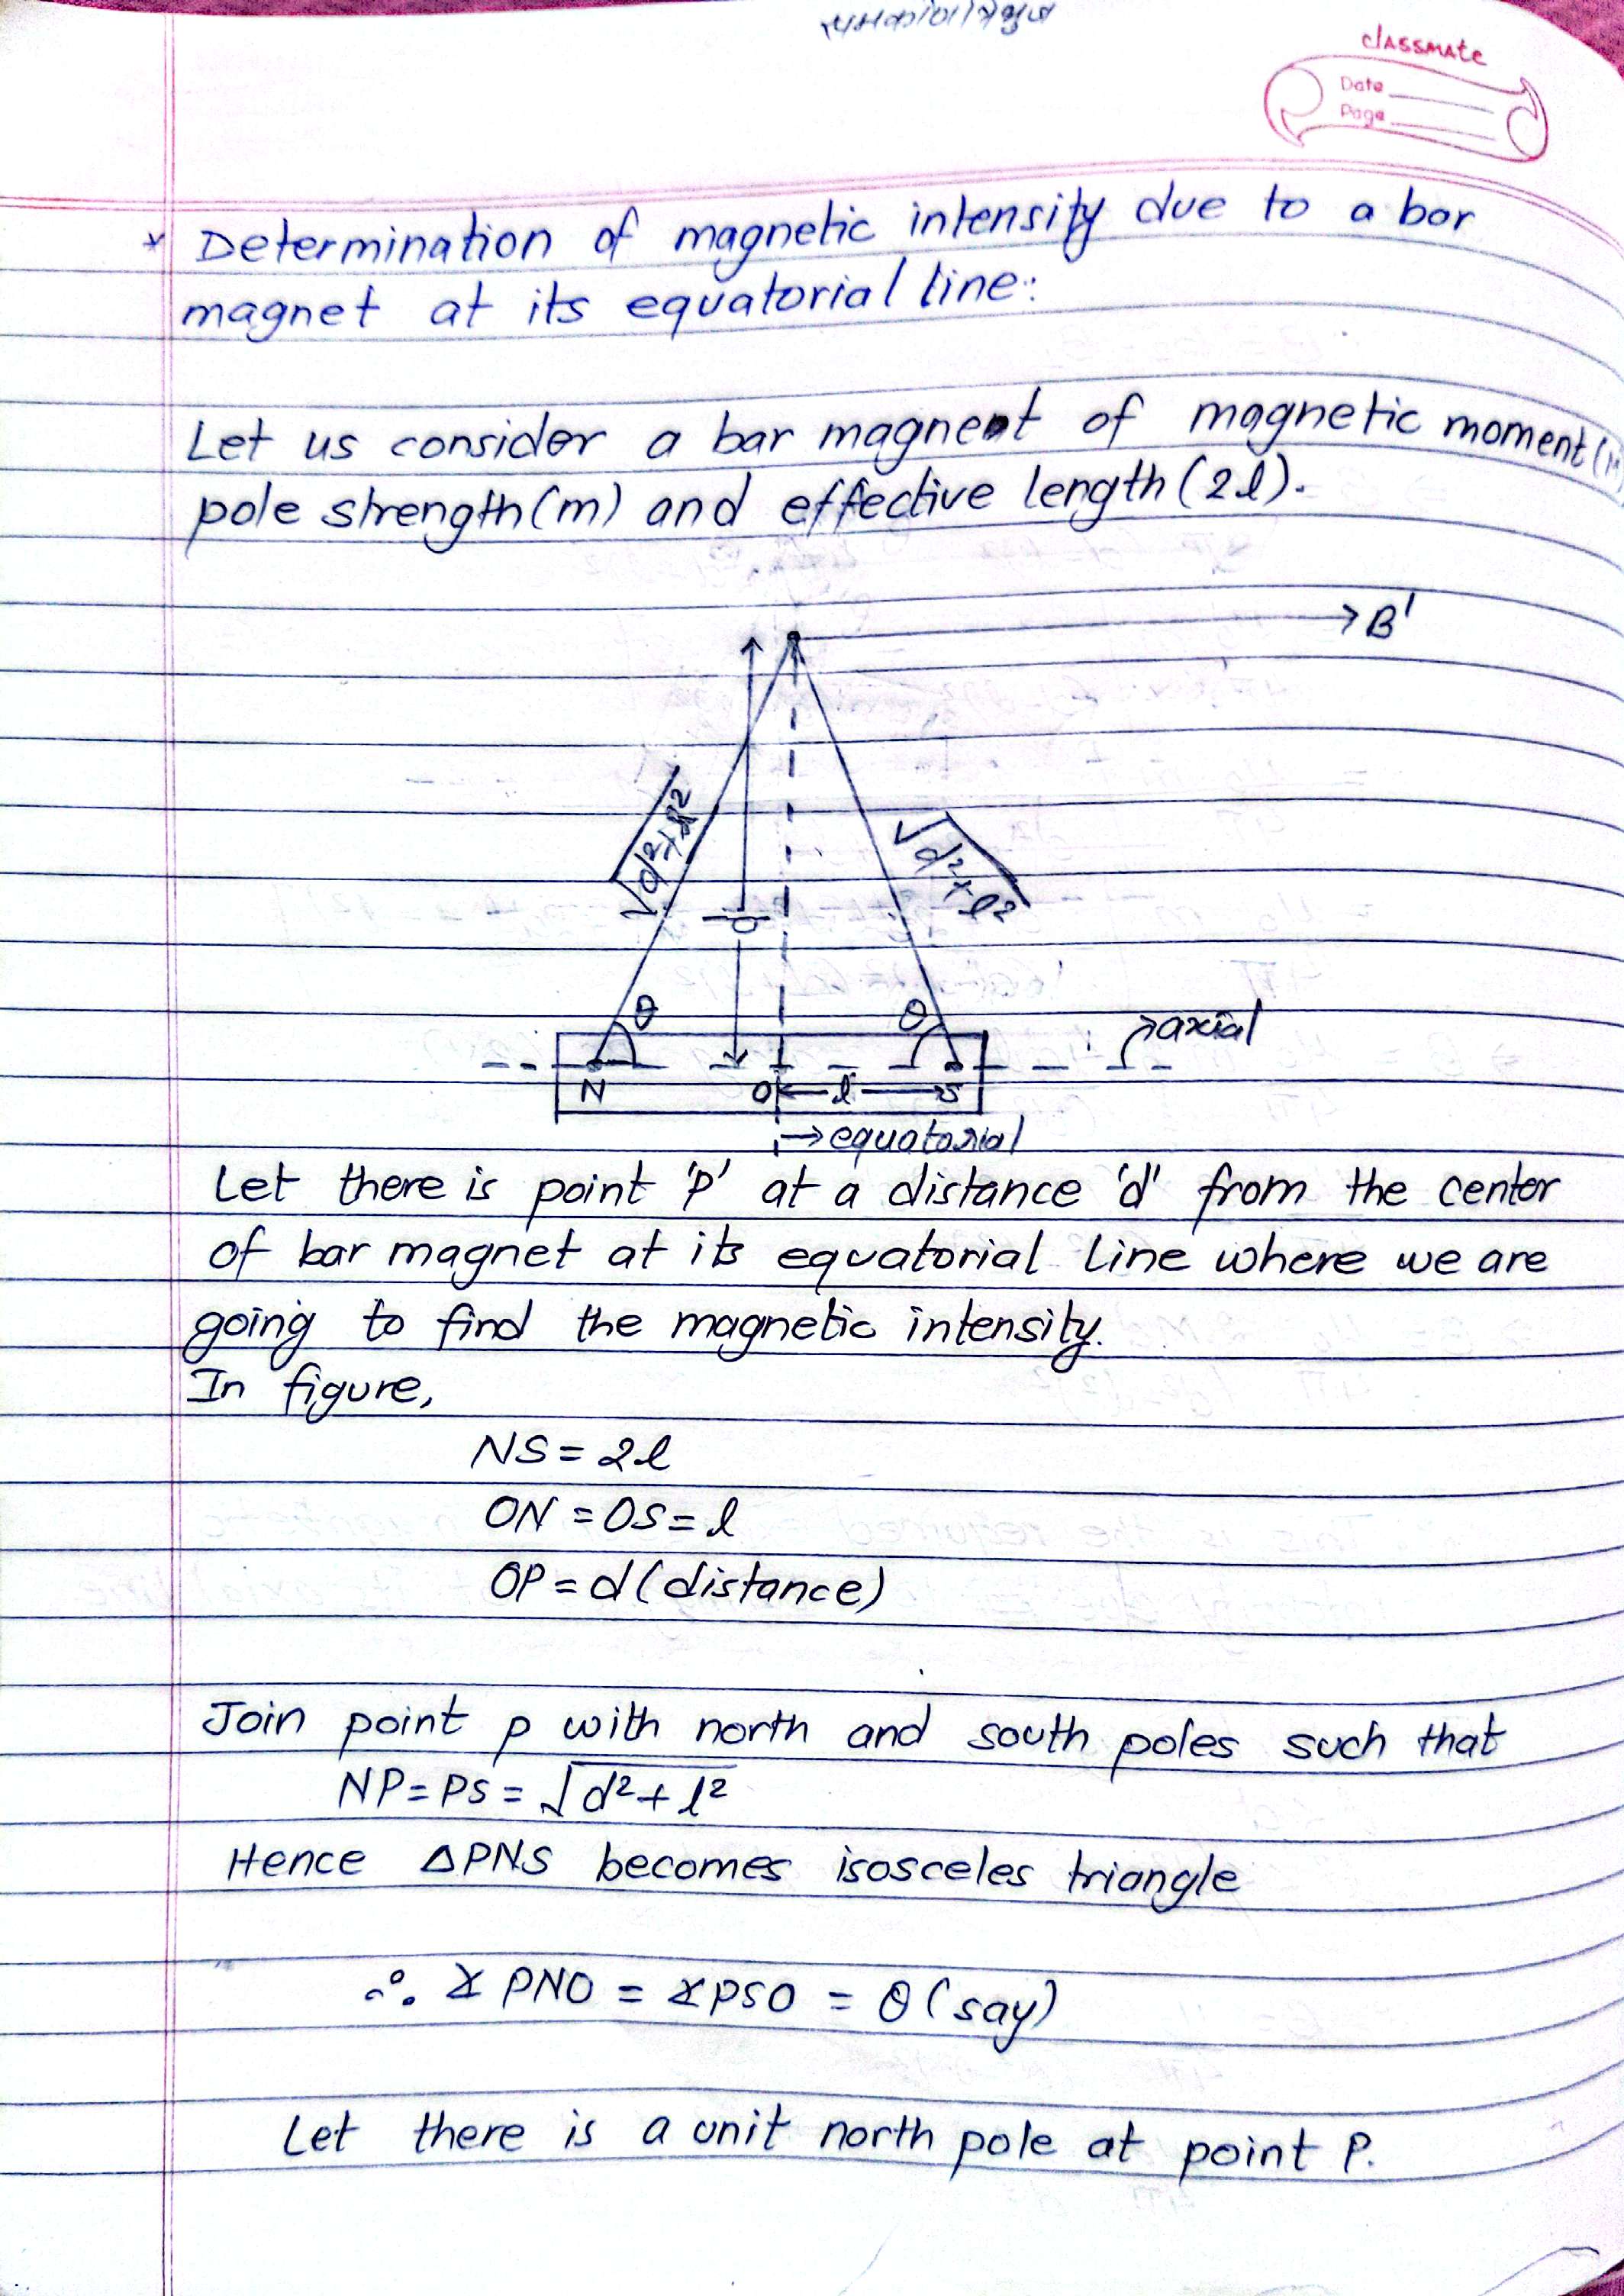 classmate
Date
Page
* Determination of magnetic intensity due to a bar
magnet at its equatorial line:
Let us consider a bar magnent of magnetic moment (M
pole strength (m) and effective length (2l).
→B'
√d²+l²
√d²+l²
d
θ
θ
axial
N
O
l
S
→ equatorial
Let there is point 'p' at a distance 'd' from the center
of bar magnet at its equatorial line where we are
going to find the magnetic intensity.
In figure,
NS = 2l
ON = OS = l
OP = d (distance)
Join point p with north and south poles such that
NP = PS = √d²+l²
Hence △PNS becomes isosceles triangle
∴ ∡PNO = ∡PSO = θ (say)
Let there is a unit north pole at point P.